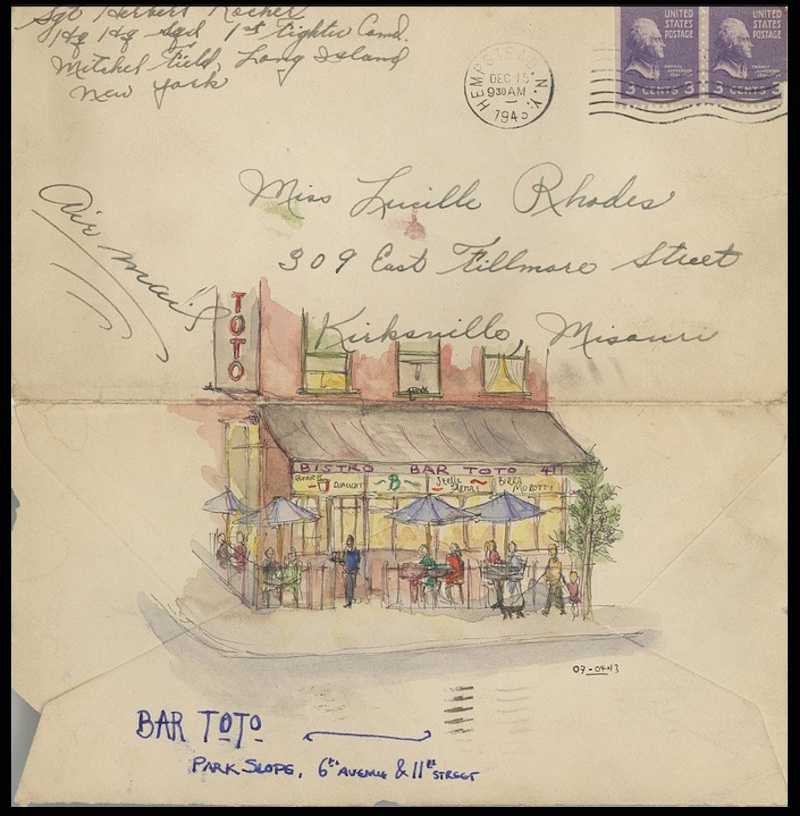 Sgt Herbert Rocher
Hq Hq Sqd 1st Fighter Comd.
Mitchel Field, Long Island
New York
HEMPSTEAD, N.Y.
DEC 15
930 AM
1943
UNITED STATES POSTAGE
3 CENTS 3
UNITED STATES POSTAGE
3 CENTS 3
Air Mail
Miss Lucille Rhodes
309 East Fillmore Street
Kirksville, Missouri
TOTO
BISTRO BAR TOTO 411
B Stella
MORETTI
07-04-13
BAR TOTO
PARK SLOPE, 6th AVENUE & 11th STREET